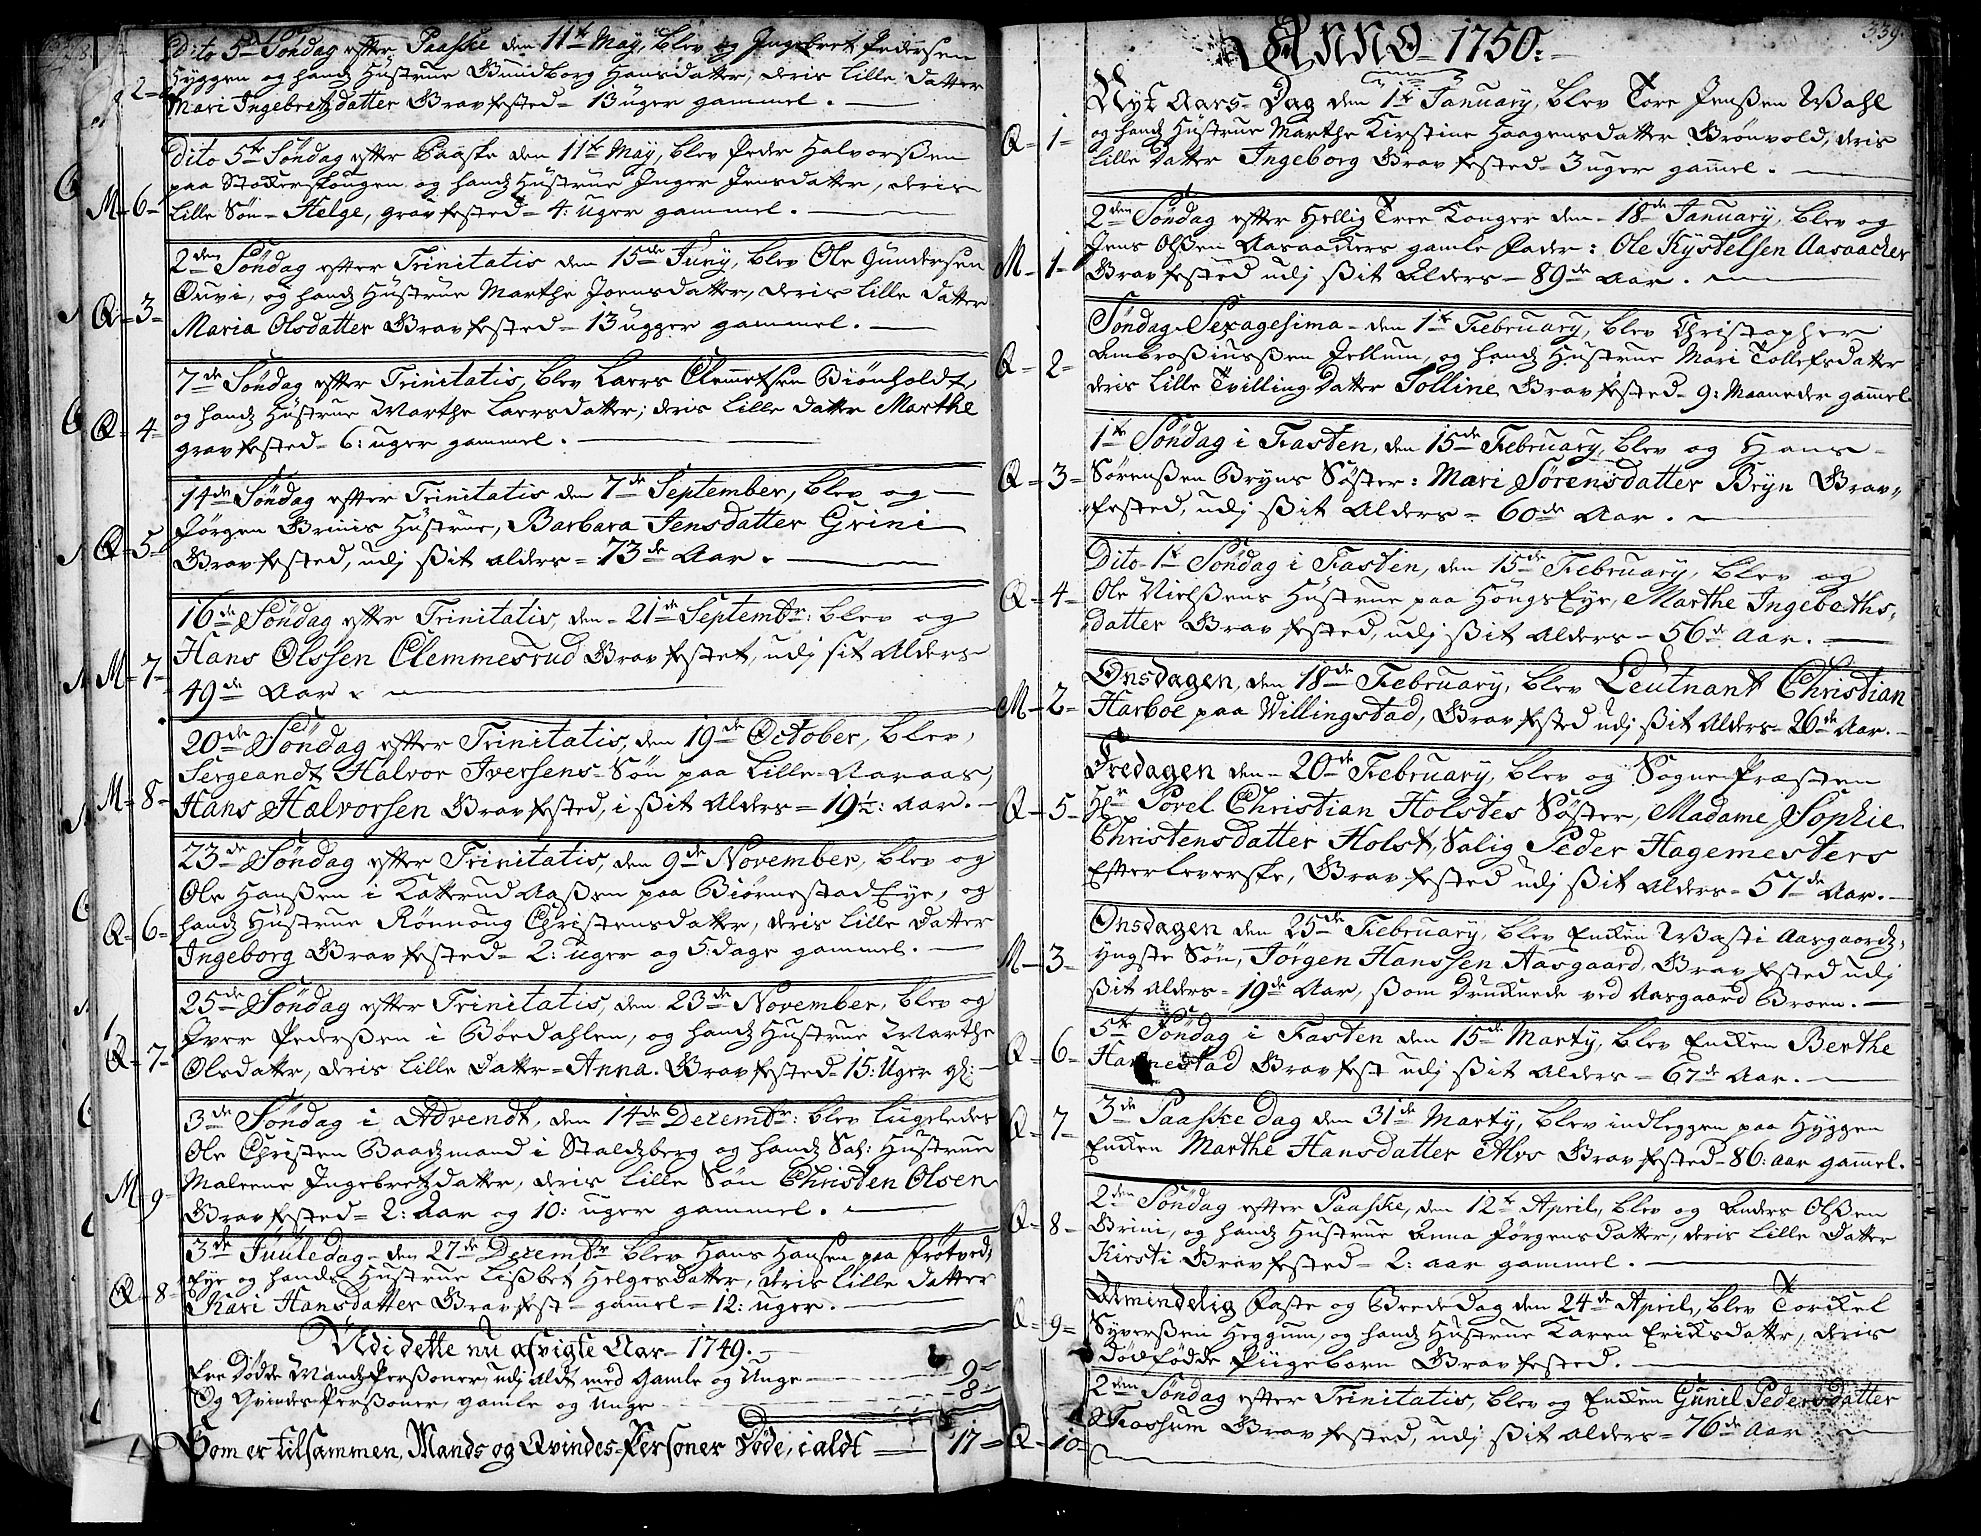 Dito 5te Søndag efter Paaske den 11te May, blev og Ingebret Pedersen
Hyggen og hands Hustrue Gundborg Hansdatter, deris lille datter
2
Mari Ingebretzdatter Gravfested = 13 uger gammel.
Dito 5te Søndag efter Paaske den 11te May, blev Peder Halvorßen
paa Stokerskougen og hands Hustrue Inger Jensdatter, deris
M = 6 = lille Søn = Helge, gravfested = 4: uger gammel.
2den Søndag efter Trinitatis den 15de Juny, blev Ole Gundersen
Ouvi, og hands Hustrue Marthe Joensdatter, deris lille datter
Q = 3 = Maria Olsdatter Gravfested = 13 ugger gammel.
7de Søndag efter Trinitatis, blev Laers Clemmetsen Biønholdt,
og hands Hustrue Marthe Laersdatter; deris lille datter Marthe
Q = 4 =
gravfested = 6: uger gammel.
14de Søndag efter Trinitatis den 7de September, blev og
Jørgen Grinis Hustrue, Barbara Jensdatter Grini
Q = 5 =
Gravfested, udj ßit alders = 73de Aar.
16de Søndag efter Trinitatis, den = 21de Septembr: blev og
Hans Olssen Clemmesrud Gravfestet, udj sit Alders
M = 7 =
49de Aar.
20de Søndag efter Trinitatis, den 19de October, blev,
Sergeandt Halvor Iversens = Søn paa Lille = Aaraas,
M = 8 = Hans Halvorsen Gravfested, i ßit Alders = 19½: Aar.
23de Søndag efter Trinitatis, den 9de November, blev og
Ole Hanßen i Katterud Aaßen paa Biørnestad Eye, og
hands Hustrue Rønnoug Christensdatter, deris lille datter
Q = 6 =
Ingeborg Gravfested = 2: uger og 5: dage gammel.
25de Søndag efter Trinitatis, den 23de November, blev og
Iver Pederßen i Bøedahlen, og hands Hustrue Marthe
Q = 7 =
Olsdatter, deris lille Dattr = Anna. Gravfested = 15: Uger gl:
3de Søndag i Advendt, den 14de Decembr: blev lugeledes
Ole Christen Baadzmand i Staldtzberg og hands Sal: Hustrue
Maleene Ingebretzdatter, deris lille Søn Christen Olsen
M = 9 =
Gravfested = 2: Aar og 10: uger gammel.
3de Juule dag = den 27de Decembr blev Hans Hansen paa Frøtved,
Eye og hands Hustrue Lißbet Helgesdatter, deris lille datter
Q = 8 = Kari Hansdatter Gravfest = gammel = 12: uger.
Udi dette nu afvigte Aar = 1749.
Ere Dødde Mands Perßoner, udj Aldt med Gamle og Unge 9
Og Qvindes Perßoner, gamle og Unge 8
Som er tilsammen, Mands og Qvindes = Personer Døde, i aldt 17
339.
ANNO = 1750:
Nyt Aars = Dag den 1te January, blev Tore Jenßen Wahl
Q = 1 = og hands Hustrue Marthe Kirstine Haagensdatter Grønvold, deris
lille datter Ingeborg Gravfested = 3 uger gammel.
2den Søndag efter Hellig Tree Konger den = 18de January, blev og
Jens Olßen Aasaakers gamle Fader: Ole Kystelsen Aasaacker
M = 1 =
Gravfested udj ßit Alders = 89de Aar.
Søndag Sexagesima = den 1te February, blev Christopher
Ambroßiusßen Jellum, og hands Hustrue Mari Tollefsdatter
Q = 2 =
deris lille Tvilling Datter Tolline Gravfested = 9: Maaneder gammel
1te Søndag i Fasten, den 15de February, blev og Hans
Q = 3 = Sørenßen Bryns Søster: Mari Sørensdatter Bryn Grav=
=fested, udj ßit Alders = 60de Aar.
Dito = 1te Søndag i Fasten, den 15de February, blev og
Q = 4 = Ole Nielßens Hustrue paa Høngs Eye, Marthe Ingebeths,
datter Gravfested, udj ßit Alders = 56de Aar.
Onsdagen, den 18de February, blev Leutnant Christian
M = 2 = Harboe paa Willingstad, Gravfested udj ßit Alders = 26de Aar.
Fredagen den = 20de February, blev og Sogne Præsten
Q = 5 = Hr Povel Christian Holstes Søster, Madame Sophie
Christensdatter Holst, Salig Peder Hagemesters
Efterleverske, Gravfested udj ßit Alders = 57de Aar.
Onsdagen den 25de February, blev Encken Wasti Aasgaards,
M = 3 = Yngste Søn, Jørgen Hanssen Aasgaard, Gravfested udj
ßit Alders = 19de Aar, ßom drucknede ved Aasgaard Broen.
5te Søndag i Fasten den 15de Marty, blev Encken Berthe
Q = 6 = Hannestad Gravfest udj ßit Alders = 67de Aar.
3de Paaske Dag den 31de Marty, blev indleggen paa Hyggen
Q = 7 =
Encken Marthe Hansdatter Alvs Gravfested = 86: aar gammel.
2den Søndag efter Paaske, den 12te April, blev og Anders Olßen
Q = 8 = Grini, og hands Hustrue Anna Jørgensdatter, deris lille Datter
Kirsti Gravfested = 2: aar gammel.
Almindelig Faste og Beede Dag den 24de April, blev Torckel
Q = 9 = Syverßen Heggum, og hands Hustrue Karen Eriksdatter, deris
dødfødde Piigebarn Gravfested.
2den Søndag efter Trinitatis, blev og Encken Gunil Pedersdatter
Fossum Gravfested, udj ßit Alders = 76de Aar
Q = 10 =